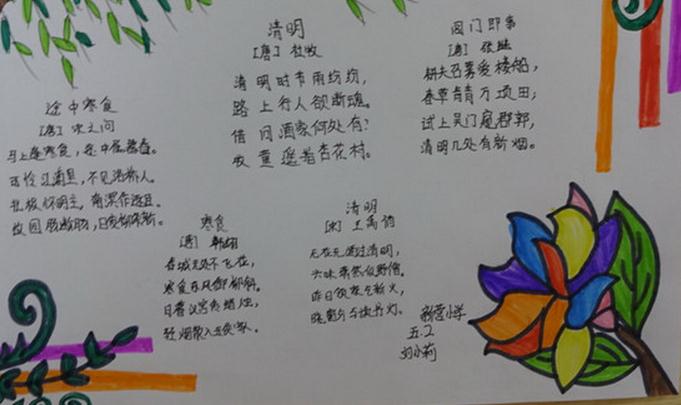 清明
[唐] 杜牧
清明时节雨纷纷，
路上行人欲断魂。
借问酒家何处有？
牧童遥指杏花村。
阊门即事
[唐] 张继
耕夫召募爱楼船，
春草青青万顷田；
试上吴门窥郡郭，
清明几处有新烟。
途中寒食
[唐] 宋之问
马上逢寒食，途中属暮春。
可怜江浦望，不见洛桥人。
北极怀明主，南溟作逐臣。
故园肠断处，日夜柳条新。
寒食
[唐] 韩翃
春城无处不飞花，
寒食东风御柳斜。
日暮汉宫传蜡烛，
轻烟散入五侯家。
清明
[宋] 王禹偁
无花无酒过清明，
兴味萧然似野僧。
昨日邻家乞新火，
晓窗分与读书灯。
新营小学
五.2
刘小莉